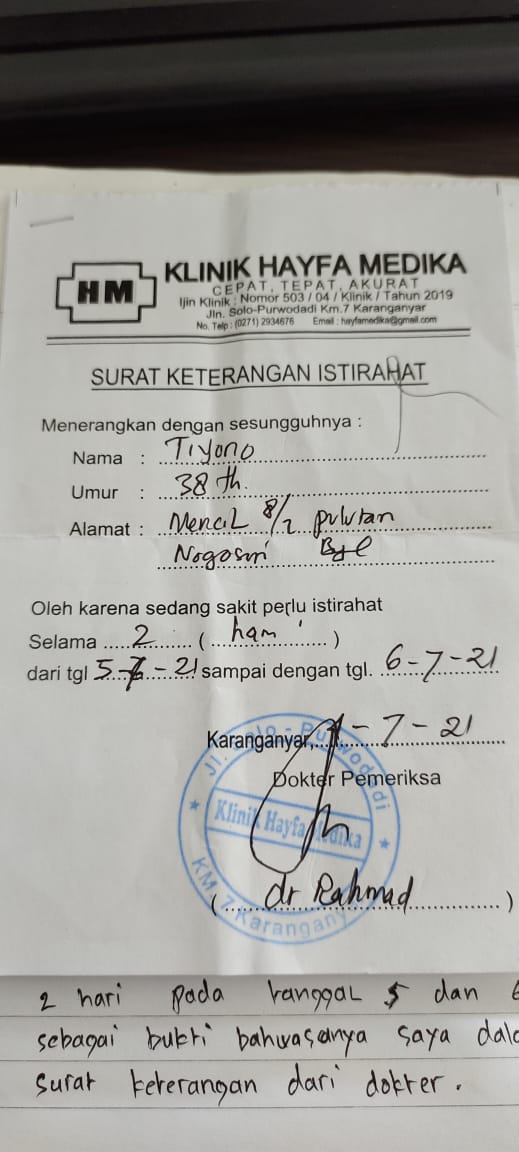 HM
KLINIK HAYFA MEDIKA
CEPAT, TEPAT, AKURAT
Ijin Klinik : Nomor 503 / 04 / Klinik / Tahun 2019
Jln. Solo-Purwodadi Km.7 Karanganyar
No. Telp : (0271) 2934676 Email : hayfamedika@gmail.com
SURAT KETERANGAN ISTIRAHAT
Menerangkan dengan sesungguhnya :
Nama : Tiyono
Umur : 38 th.
Alamat : Mencil 8/2 pulutan
Nogosari Byl
Oleh karena sedang sakit perlu istirahat
Selama 2 ( hari )
dari tgl 5-7-21 sampai dengan tgl. 6-7-21
Karanganyar, -7-21
Dokter Pemeriksa
Jl. Solo - Purwodadi
Klinik Hayfa Medika
KM 7 Karangany
( dr Rahmad )
2 hari pada tanggal 5 dan
sebagai bukti bahwasanya saya
surat keterangan dari dokter.